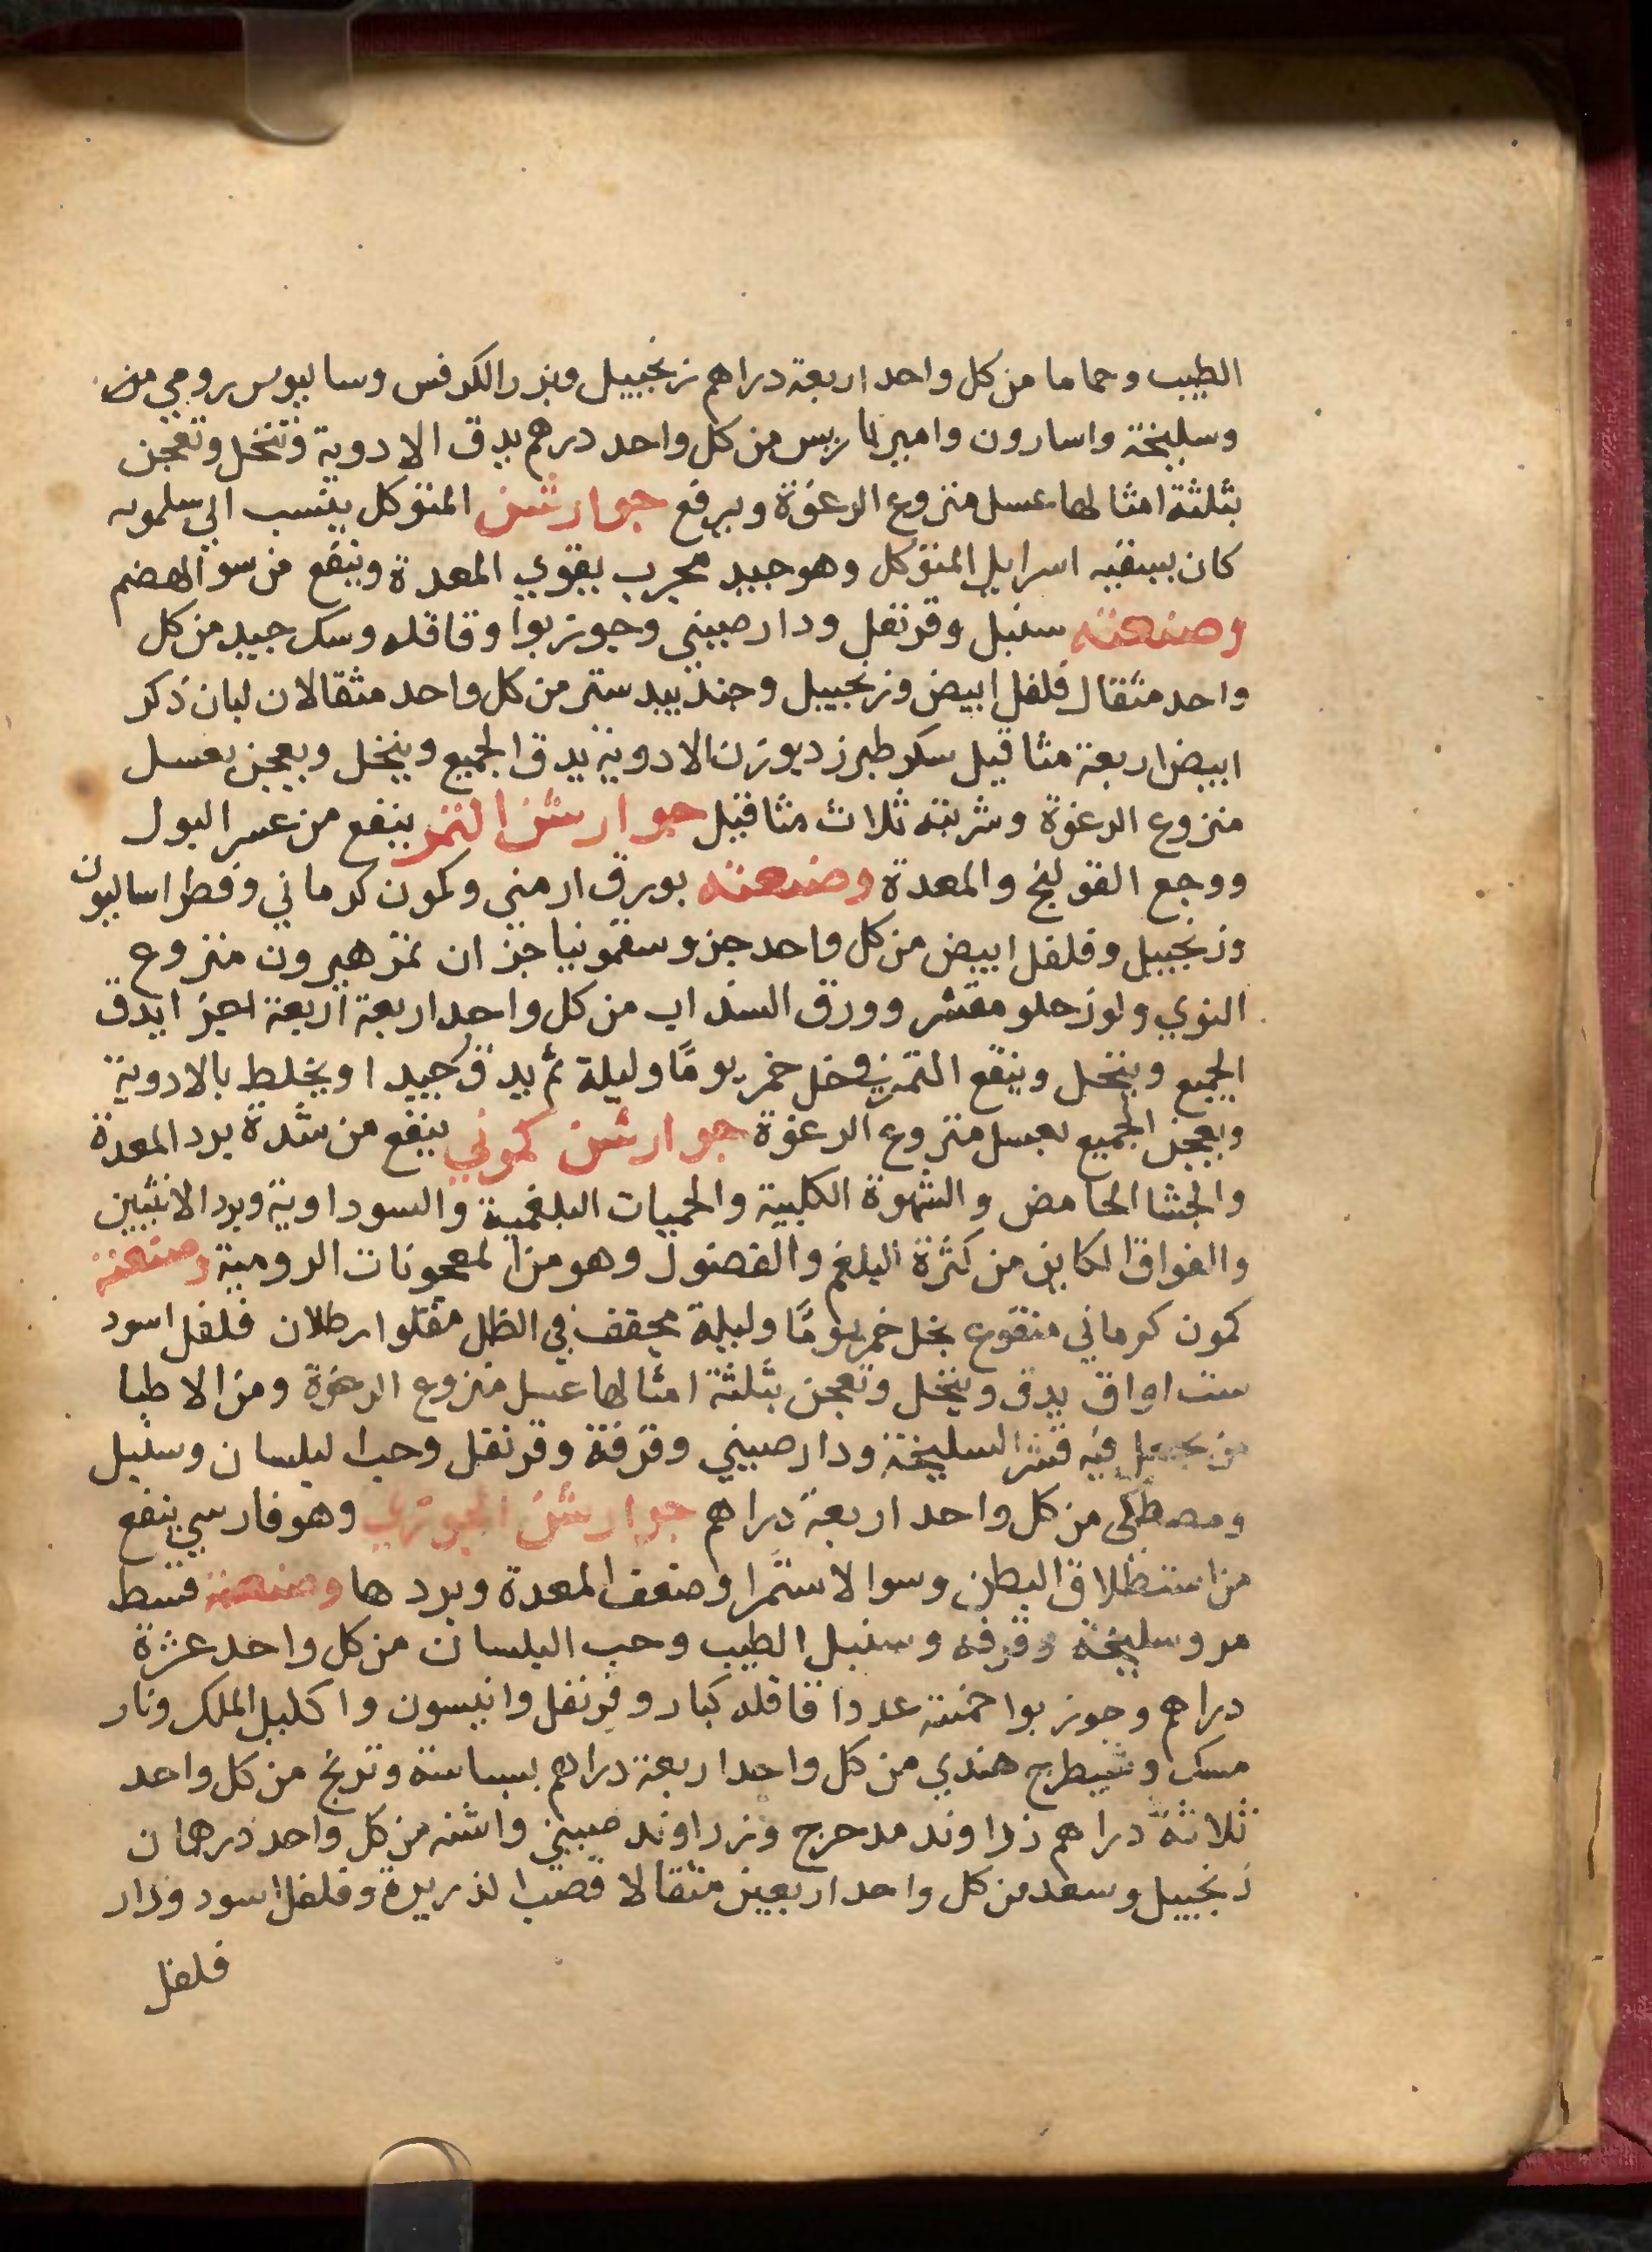 الطيب وحماما من كل واحد اربعة دراهم زنجبيل وبزر الكرفس وساليوس رومي من
وسليخة واسارون وامير باريس من كل واحد درهم يدق الادوية وتنخل وتعجن
بثلثة امثالها عسل منزوع الرغوة ويرفع جوارشن المتوكل ينسب الي سلمويه
كان يسقيه اسرايل المتوكل وهو جيد مجرب يقوي المعدة وينفع من سو الهضم
وصنعته سنبل وقرنفل ودار صيني وجوز بوا وقاقله وسك جيد من كل
واحد مثقال فلفل ابيض وزنجبيل وجندبيدستر من كل واحد مثقالان لبان ذكر
ابيض اربعة مثاقيل سكر طبرزد بوزن الادوية يدق الجميع وينخل ويعجن بعسل
منزوع الرغوة وشربته ثلاث مثاقيل جوارشن التمر ينفع من عسر البول
ووجع القولنج والمعدة وصنعته بورق ارمني وكمون كرماني وفطراساليون
وزنجبيل وفلفل ابيض من كل واحد جزو سقمونيا جزان تمر هيرون منزوع
النوي ولوز حلو مقشر وورق السنداب من كل واحد اربعة اربعة اجزا يدق
الجميع وينخل وينقع التمر في خل خمر يومًا وليلة ثم يدق جيدا ويخلط بالادوية
ويعجن الجميع بعسل منزوع الرغوة جوارشن كموني ينفع من شدة برد المعدة
والجشا الحامض والشهوة الكلبية والحميات البلغمية والسوداوية وبرد الانثيين
والفواق الكاين من كثرة البلغم والفضول وهو من المعجونات الرومية وصنعته
كمون كرماني منقوع بخل خمر يومًا وليلة مجفف في الظل مقلو ارطلان فلفل اسود
ست اواق يدق وينخل وتعجن بثلثة امثالها عسل منزوع الرغوة ومن الاطبا
من يجعل فيه قشر السليخة ودار صيني وقرفة وقرنفل وحب البلسان وسنبل
ومصطكى من كل واحد اربعة دراهم جوارشن الجوزي وهو فارسي ينفع
من استطلاق البطن وسوا لاستمرا وضعف المعدة وبردها وصنعته قسط
مر وسليخة وقرفه وسنبل الطيب وحب البلسان من كل واحد عشرة
دراهم وجوز بوا خمسة عددا قاقله كبار وقرنفل وانيسون واكليل الملك ونار
مسك وشيطرج هندي من كل واحد اربعة دراهم بسباسة وترنج من كل واحد
ثلاثة دراهم زراوند مدحرج وزراوند صيني واشنه من كل واحد درهمان
زنجبيل وسعد من كل واحد اربعين مثقالا قصب الذريرة وفلفل اسود ودار
فلفل